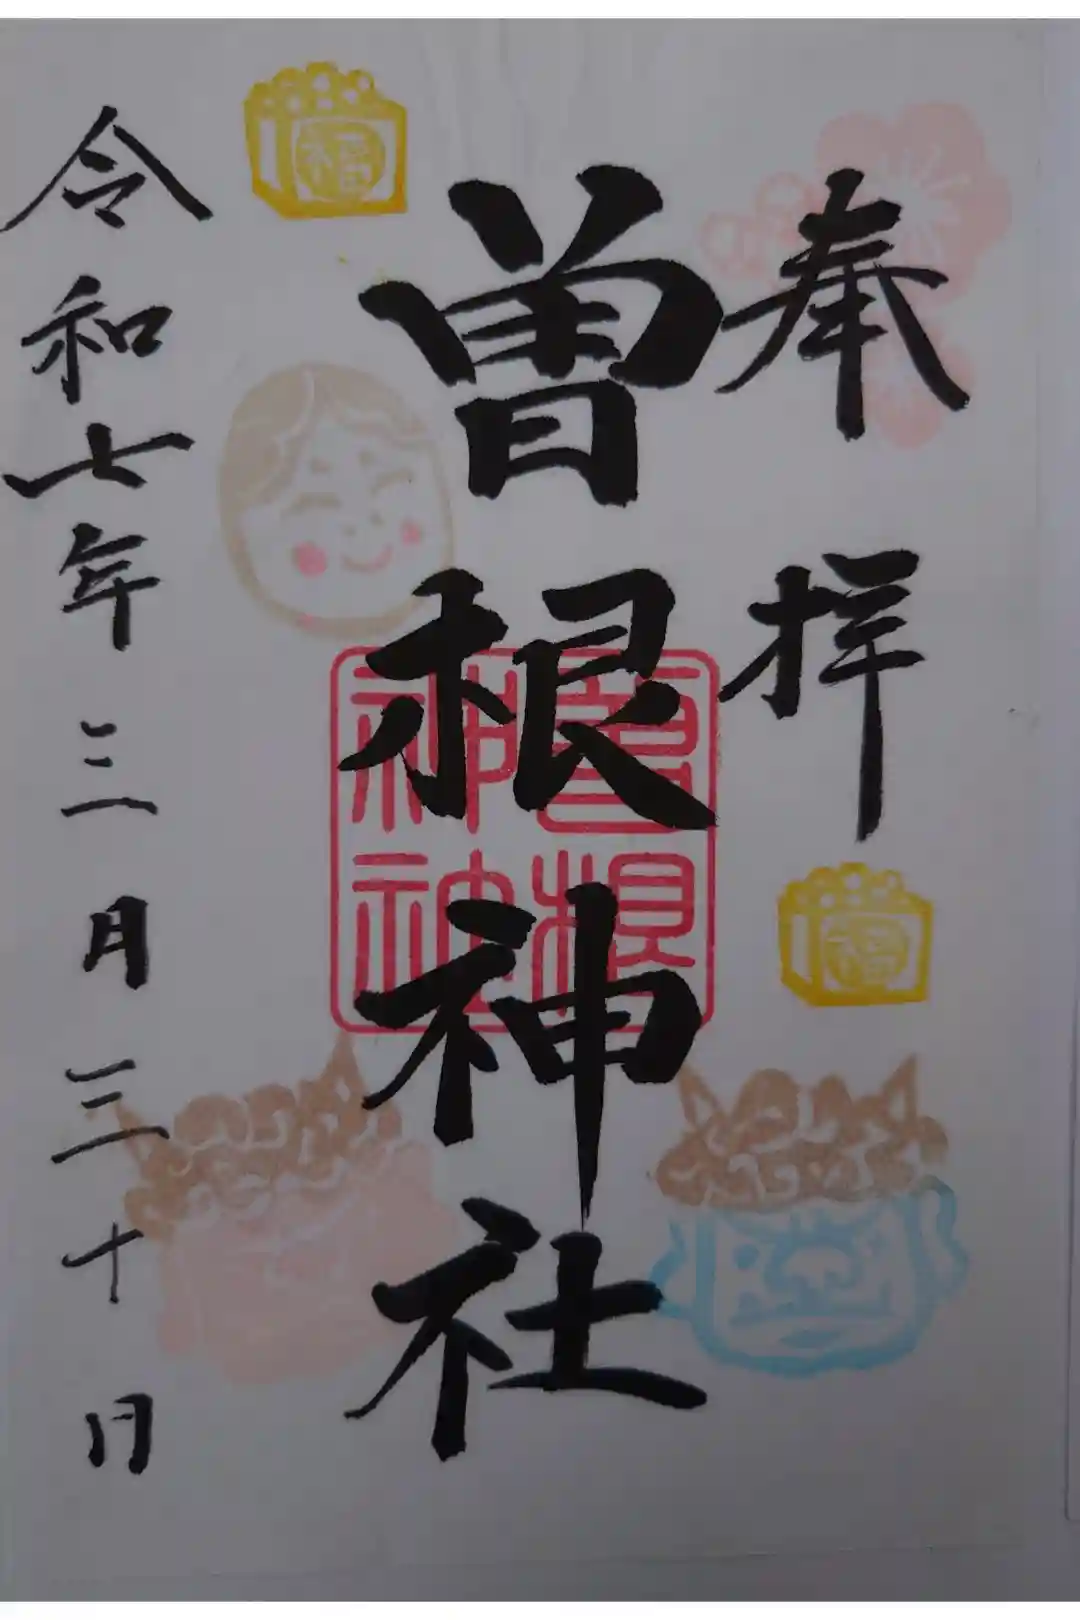 奉拝
曽根神社
曽根
神社
令和七年三月三十日
福
福